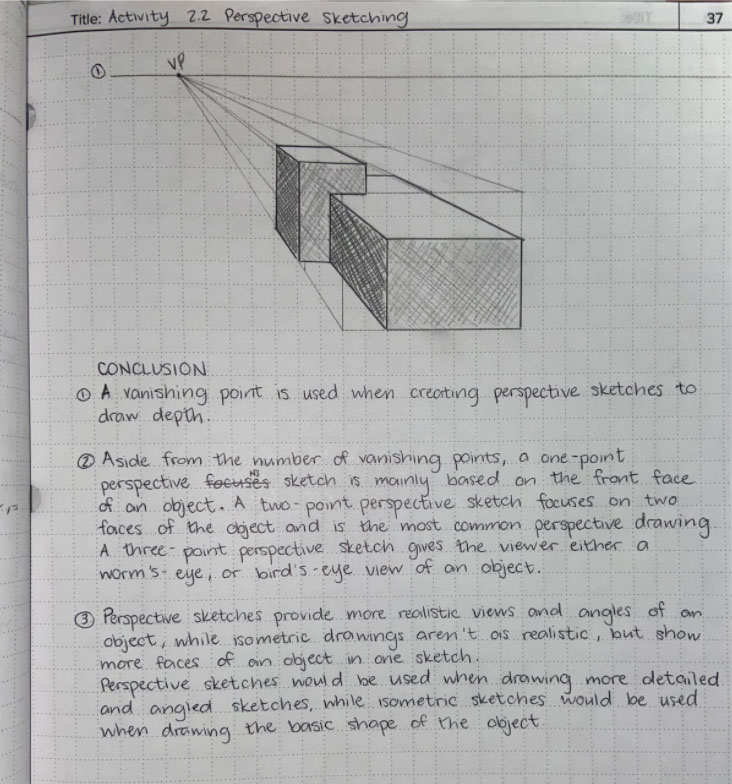 Title: Activity 2.2 Perspective Sketching
37
① VP
CONCLUSION
① A vanishing point is used when creating perspective sketches to
draw depth.
② Aside from the number of vanishing points, a one-point
perspective focuses sketch is mainly based on the front face
of an object. A two-point perspective sketch focuses on two
faces of the object and is the most common perspective drawing.
A three-point perspective sketch gives the viewer either a
worm's-eye, or bird's-eye view of an object.
③ Perspective sketches provide more realistic views and angles of an
object, while isometric drawings aren't as realistic, but show
more faces of an object in one sketch.
Perspective sketches would be used when drawing more detailed
and angled sketches, while isometric sketches would be used
when drawing the basic shape of the object